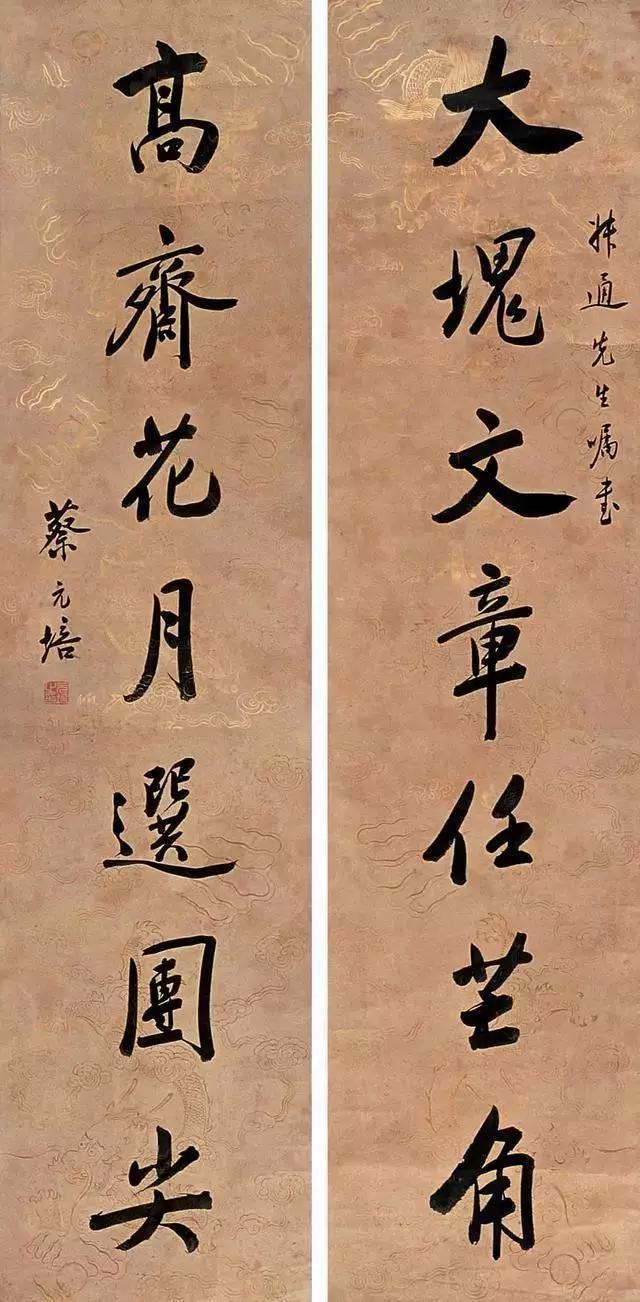 大塊文章任芒角
叔通先生嘱书
高齋花月選團尖
蔡元培